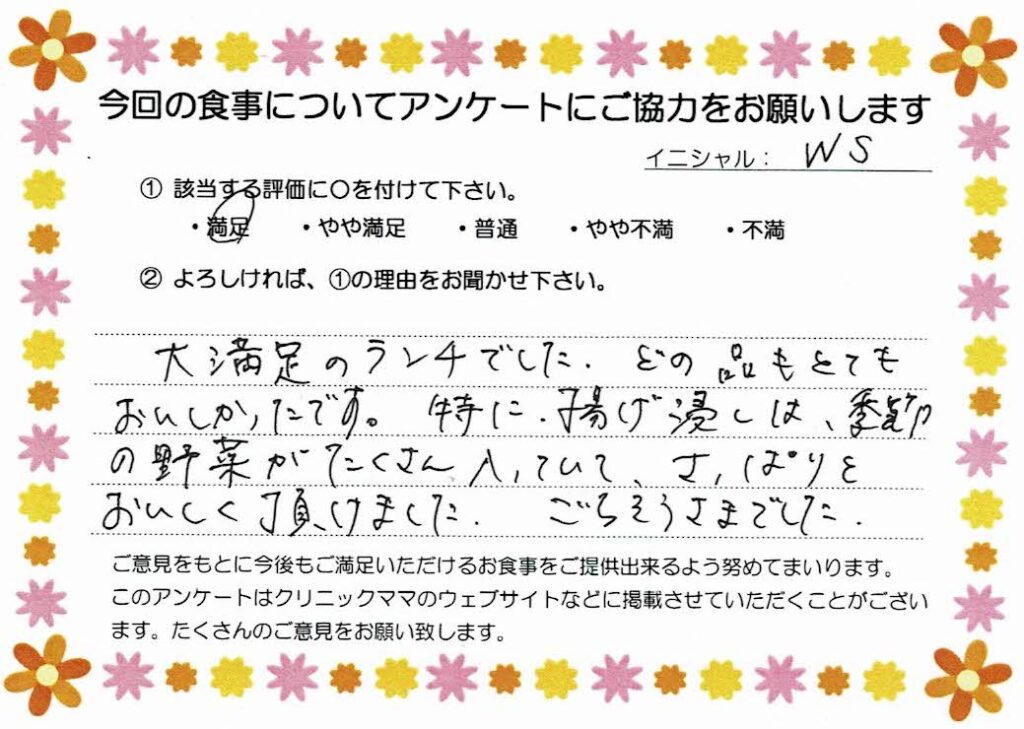 今回の食事についてアンケートにご協力をお願いします
イニシャル： WS
① 該当する評価に〇を付けて下さい。
・満足 ・やや満足 ・普通 ・やや不満 ・不満
② よろしければ、①の理由をお聞かせ下さい。
大満足のランチでした. どの品もとても
おいしかったです。特に、揚げ浸しは、季節
の野菜がたくさん入っていて、さっぱりと
おいしく頂けました. ごちそうさまでした.
ご意見をもとに今後もご満足いただけるお食事をご提供出来るよう努めてまいります。
このアンケートはクリニックママのウェブサイトなどに掲載させていただくことがござい
ます。たくさんのご意見をお願い致します。